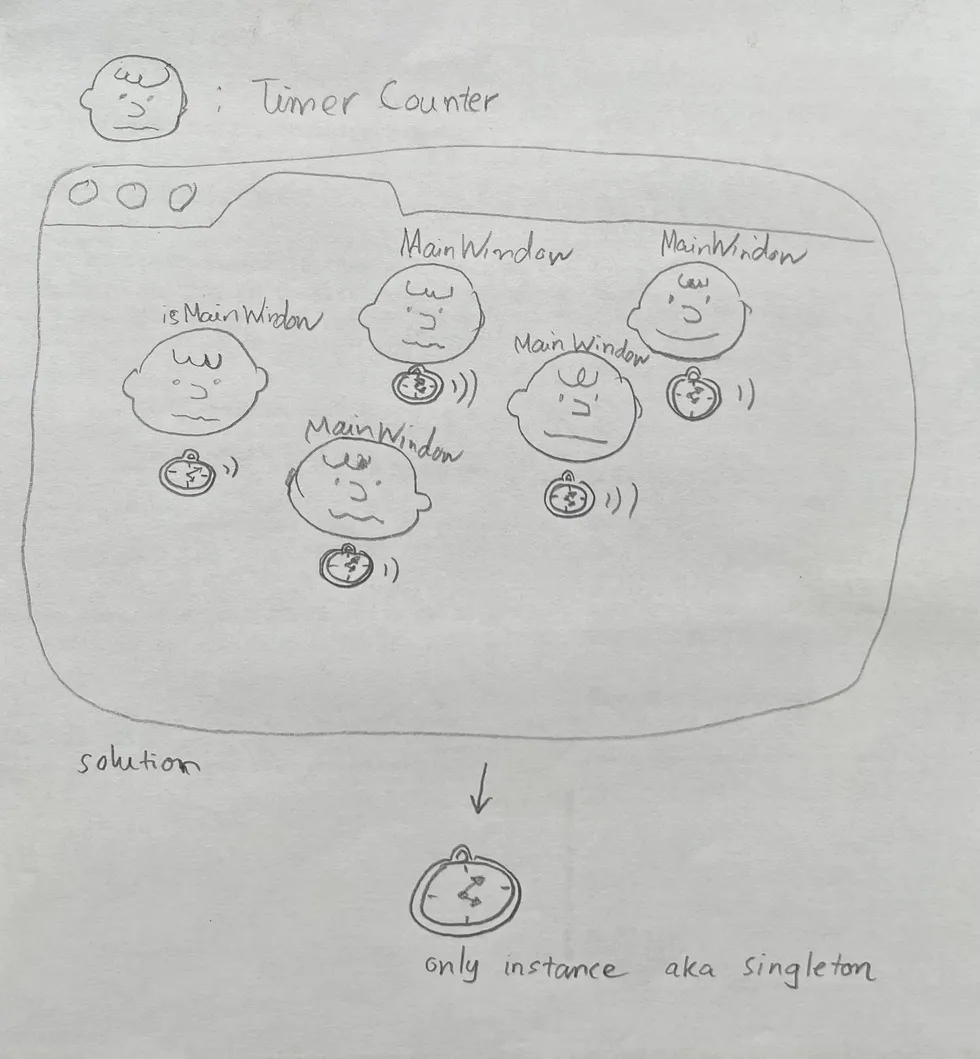 : Timer Counter
MainWindow
MainWindow
isMainWindow
MainWindow
MainWindow
solution
only instance aka singleton